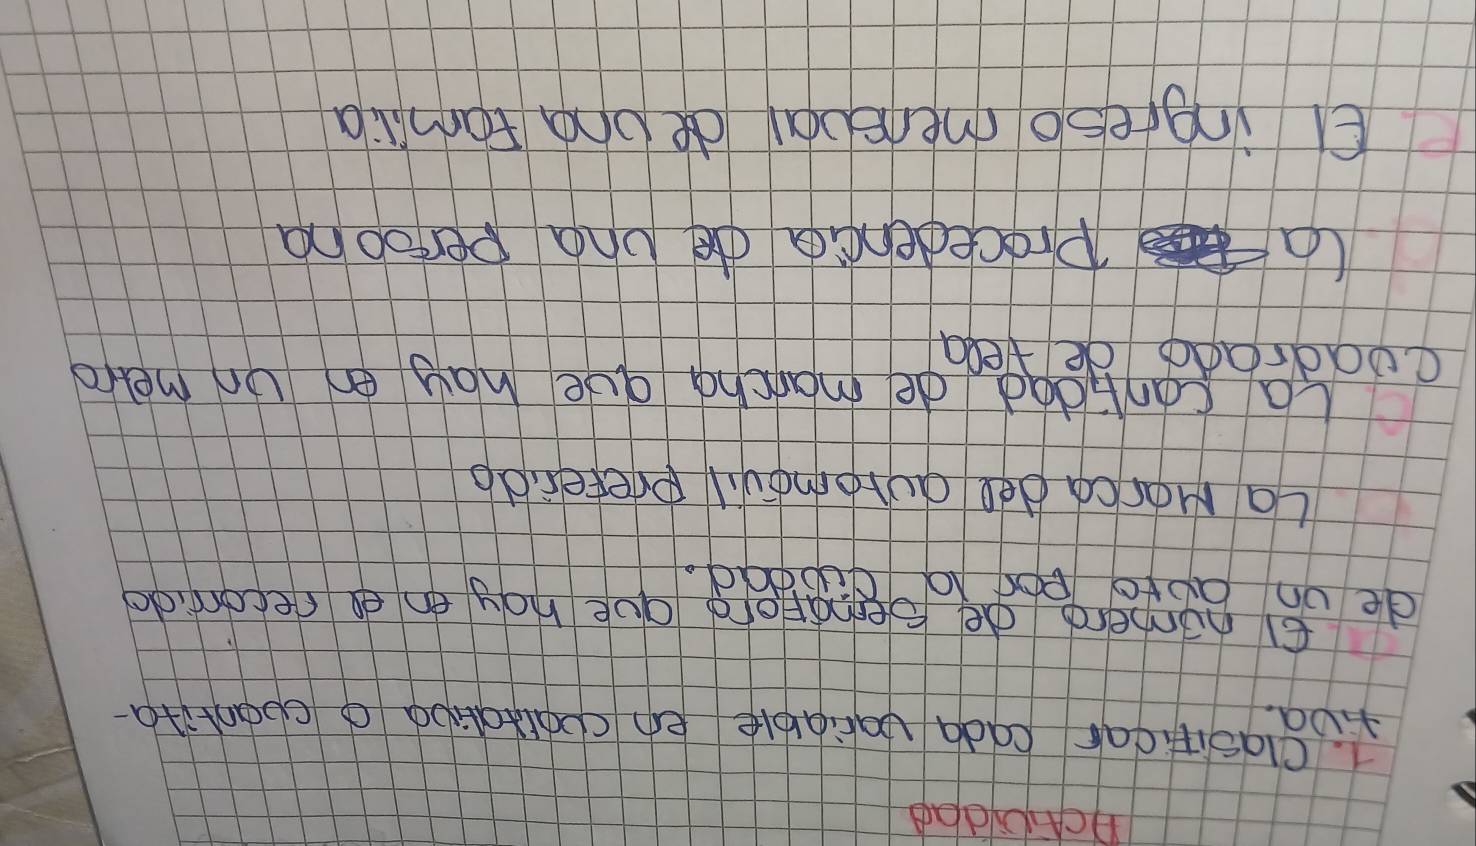 Actividad
1. Clasificar cada variable en cualitativa o cuantita-
tiva.
a. El número de semaforo que hay en el recorrido
de un auto por la ciudad.
b. La Marca del automóvil preferido
c. La cantidad de mancha que hay en un metro
cuadrado de tela
d. La procedencia de una persona
e. El ingreso mensual de una familia